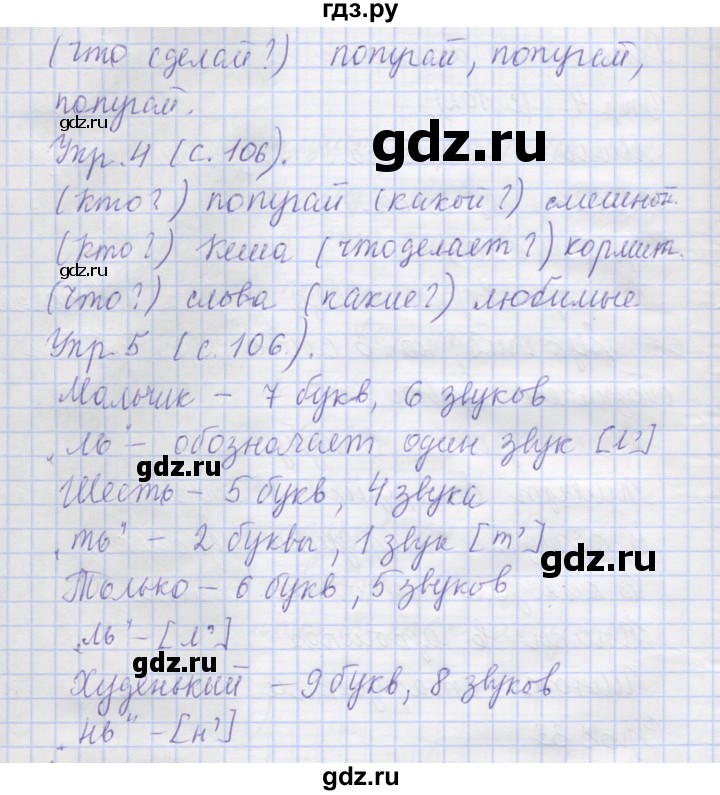 гдз.ру
(что сделай?) попугай, попугай,
попугай.
gdz.ru
Упр. 4 (с. 106).
gdz.ru
(кто?) попугай (какой?) смешной.
(кто?) Кеша (что делает?) кормит.
gdz.ru
(что?) слова (какие?) любимые
Упр. 5 (с. 106).
Мальчик – 7 букв, 6 звуков
„ль" – обозначает один звук [л']
gdz.ru
Шесть – 5 букв, 4 звука
„ть" – 2 буквы, 1 звук [т']
gdz.ru
Только – 6 букв, 5 звуков
„ль" – [л']
gdz.ru
Худенький – 9 букв, 8 звуков
„нь" – [н']
gdz.ru